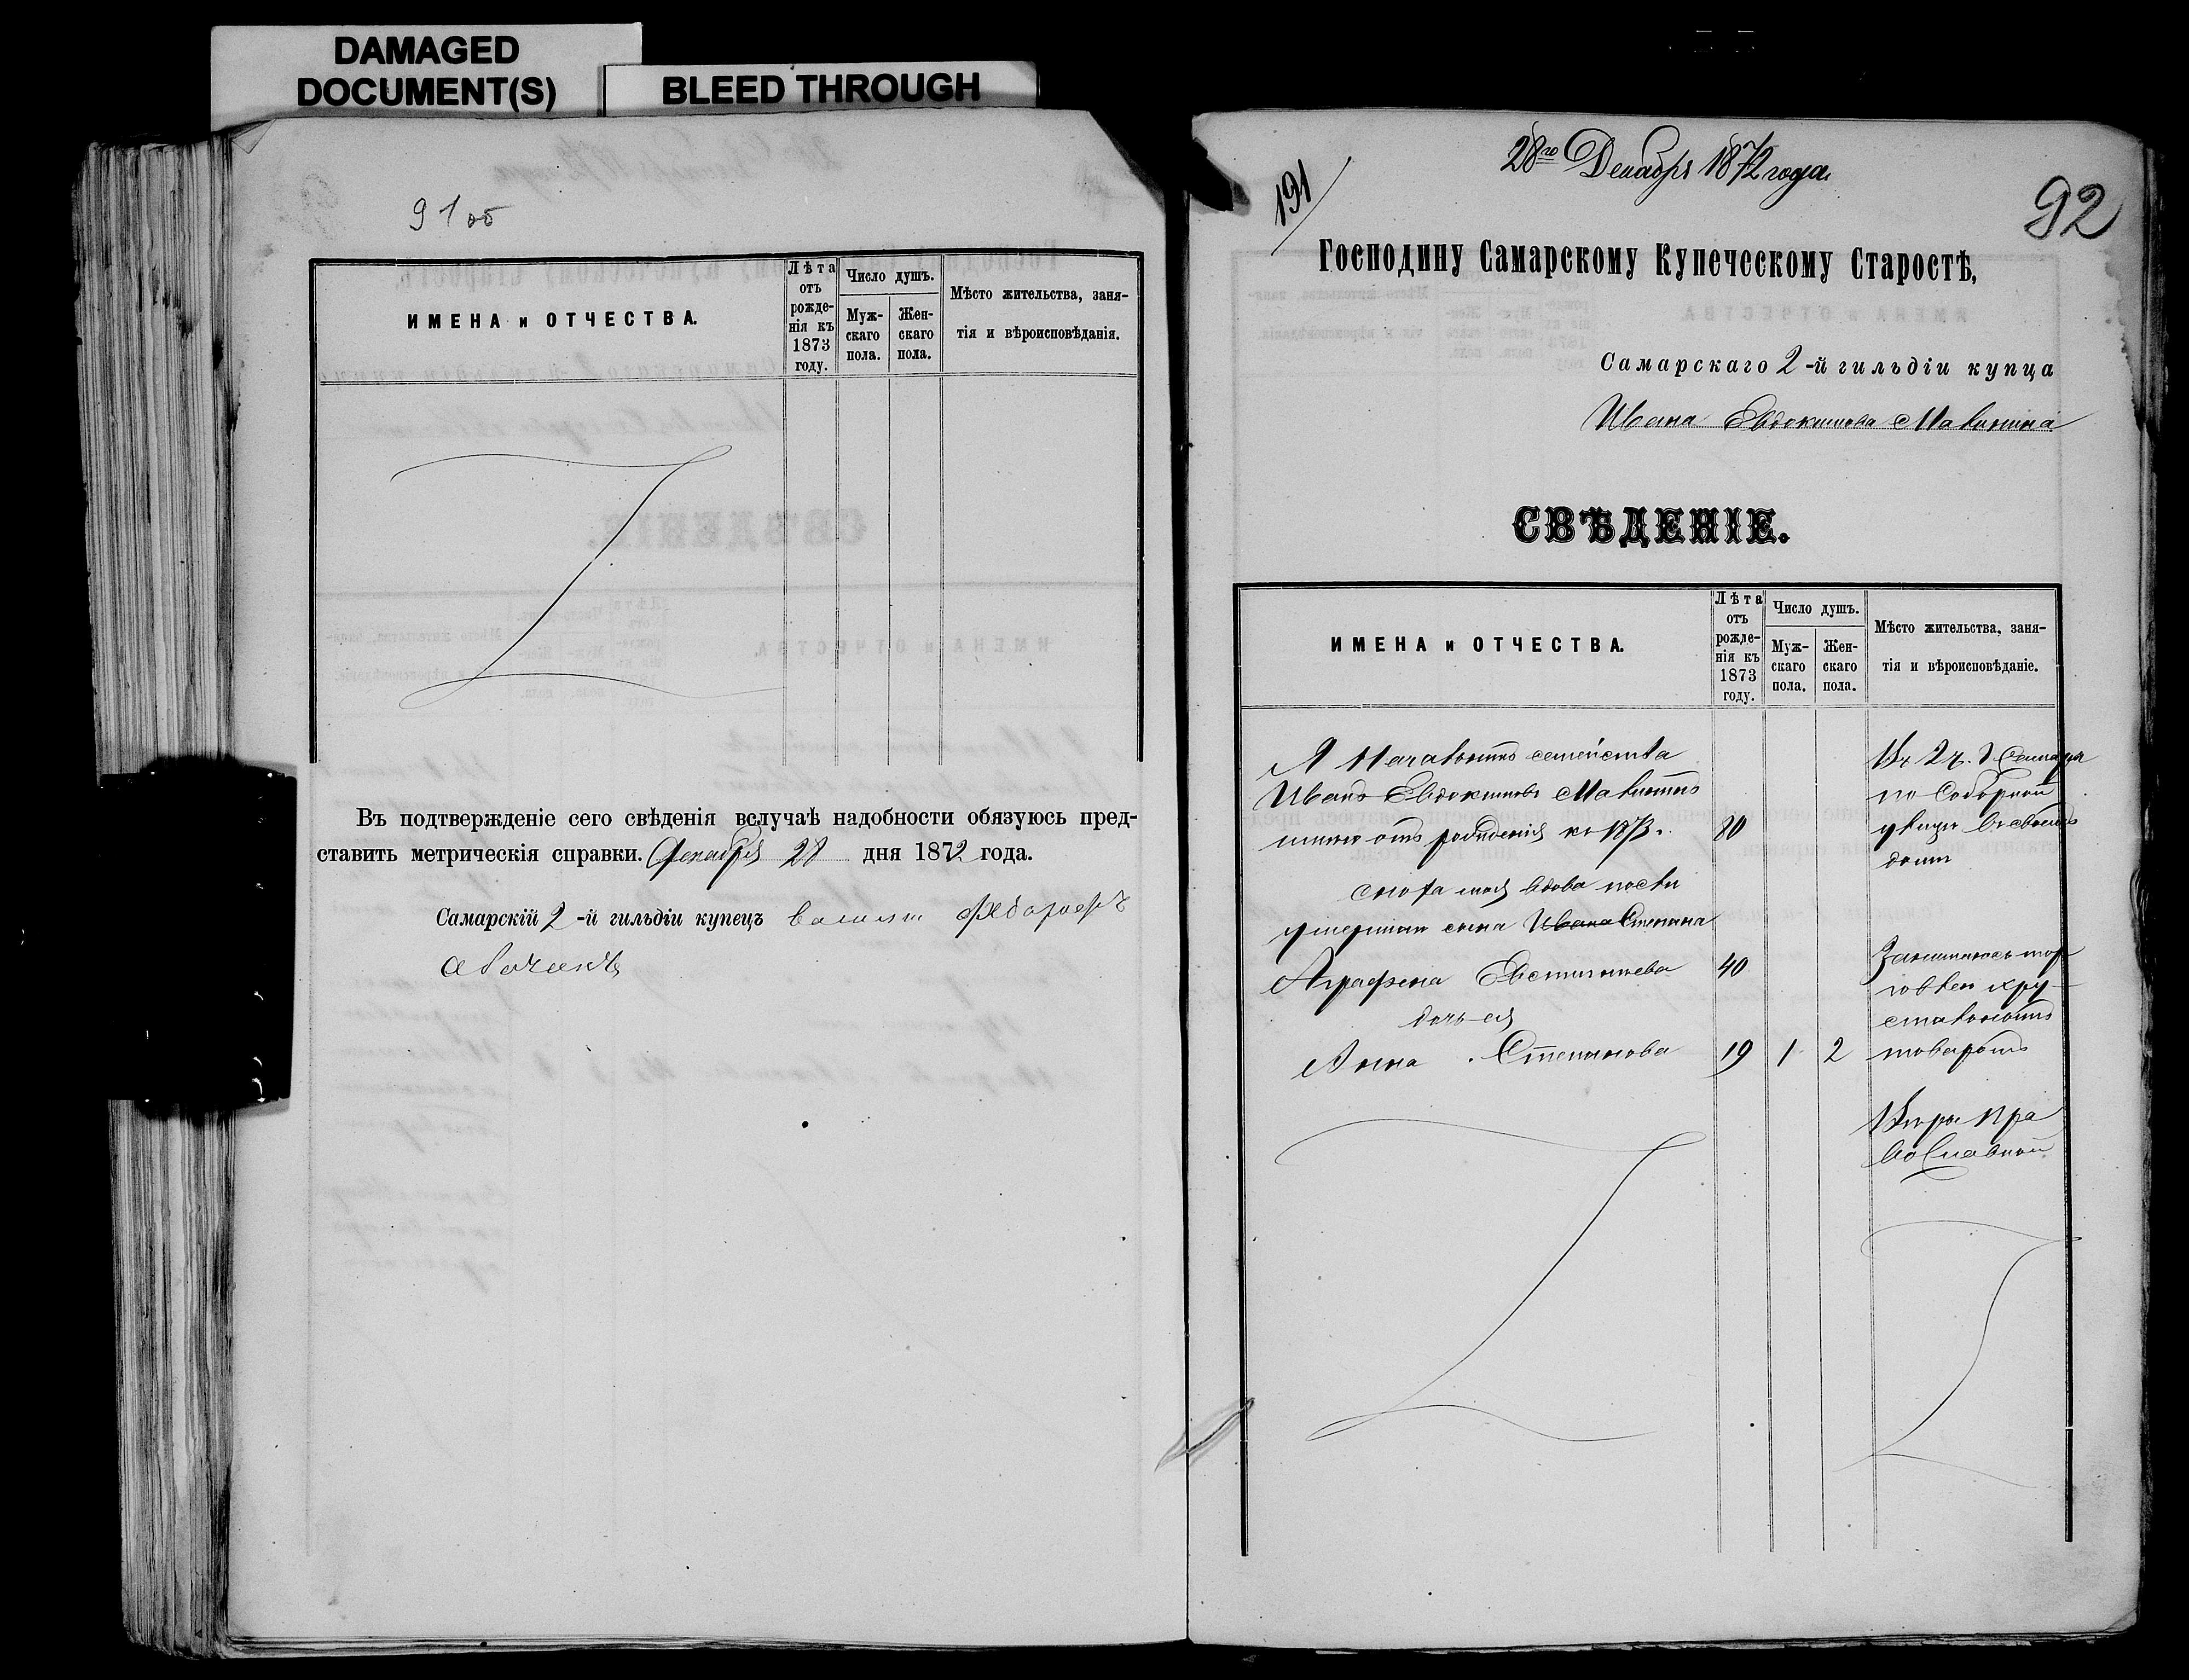 DAMAGED
DOCUMENT(S)
BLEED THROUGH
91 об
ИМЕНА и ОТЧЕСТВА.
Лѣта отъ рожде-нія къ 1873 году.
Число душъ.
Муж-скаго пола.
Жен-скаго пола.
Мѣсто жительства, заня-
тія и вѣроисповѣданія.
Въ подтвержденіе сего свѣденія вслучаѣ надобности обязуюсь пред-
ставить метрическія справки. Декабря 28 дня 1872 года.
Самарскій 2-й гильдіи купецъ
191
28го Декабря 1872 года.
92
Господину Самарскому Купеческому Старостѣ,
Самарскаго 2-й гильдіи купца
Ивана Евдокимова Малютина
СВѢДЕНІЕ.
ИМЕНА и ОТЧЕСТВА.
Лѣта отъ рожде-нія къ 1873 году.
Число душъ.
Муж-скаго пола.
Жен-скаго пола.
Мѣсто жительства, заня-
тія и вѣроисповѣданіе.
Я Началникъ семейства
Иванъ Евдокимовъ Малютинъ
мнѣ отъ рожденія къ 1873 г. 80
сноха моя вдова послѣ
умершаго сына Ивана Степана
Аграфена Евстигнѣева 40
дочь ея
Анна Степанова 19 1 2
Въ 2 ч. г Самары
по Соборной
улицѣ въ своемъ
доме
Занимаюсь тор
говлей хру-
сталнымъ
товаромъ
Вѣры Пра
вославной